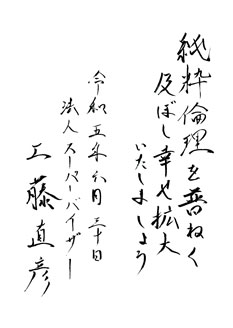 純粋倫理を普ねく
及ぼし幸せ拡大
いたしましょう
令和五年六月三十日
法人スーパーバイザー
工藤直彦